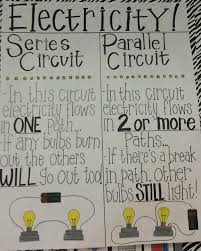 Electricity!
Series
Circuit
-In this circuit
electricity flows
in ONE Path...
-If any bulbs burn
out the others
WILL go out too!
Parallel
Circuit
-In this circuit
electricity flows
in 2 or more
Paths...
-If there's a break
in path. Other
bulbs STILL light!